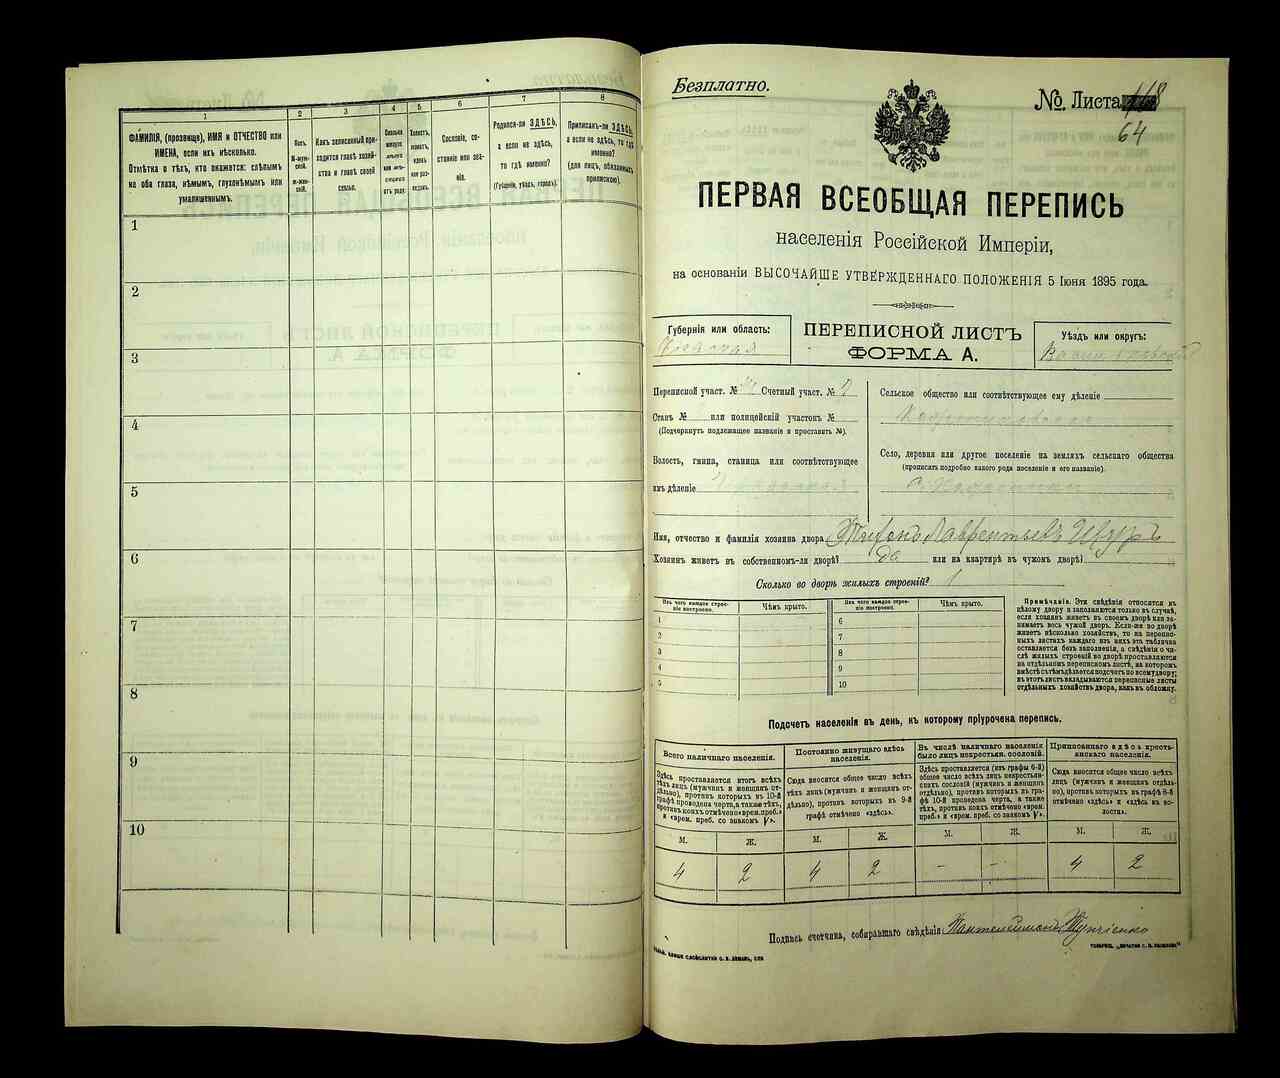 1
2
3
4
5
6
7
8
ФАМИЛІЯ, (прозвище), ИМЯ и ОТЧЕСТВО или
ИМЕНА, если ихъ нѣсколько.
Отмѣтка о тѣхъ, кто окажется: слѣпымъ
на оба глаза, нѣмымъ, глухонѣмымъ или
умалишеннымъ.
Полъ.
М-муж-
ской.
ж-жен-
скій.
Какъ записанный при-
ходится главѣ хозяй-
ства и главѣ своей
семьи.
Сколько
минуло
лѣтъ
или мѣ-
сяцевъ
отъ роду.
Холостъ,
женатъ,
вдовъ
или раз-
веденъ.
Сословіе, со-
стояніе или зва-
ніе.
Родился-ли ЗДѢСЬ,
а если не здѣсь,
то гдѣ именно?
(Губернія, уѣздъ, городъ).
Приписанъ-ли ЗДѢСЬ,
а если не здѣсь, то гдѣ
именно?
(для лицъ, обязанныхъ
припискою).
1
2
3
4
5
6
7
8
9
10
Безплатно.
№ Листа
64
ПЕРВАЯ ВСЕОБЩАЯ ПЕРЕПИСЬ
населенія Россійской Имперіи,
на основаніи ВЫСОЧАЙШЕ УТВЕРЖДЕННАГО ПОЛОЖЕНІЯ 5 Іюня 1895 года.
Губернія или область:
ПЕРЕПИСНОЙ ЛИСТЪ
ФОРМА А.
Уѣздъ или округъ:
Переписной участ. № Счетный участ. №
Станъ № или полицейскій участокъ №
(Подчеркнуть подлежащее названіе и проставить №).
Волость, гмина, станица или соотвѣтствующее
имъ дѣленіе
Сельское общество или соотвѣтствующее ему дѣленіе
Село, деревня или другое поселеніе на земляхъ сельскаго общества
(прописать подробно какого рода поселеніе и его названіе).
Имя, отчество и фамилія хозяина двора Тихонъ Лаврентьевъ
Хозяинъ живетъ въ собственномъ-ли дворѣ? да или на квартирѣ въ чужомъ дворѣ?
Сколько во дворѣ жилыхъ строеній? 1
Изъ чего каждое строе-
ніе построено.
Чѣмъ крыто.
Изъ чего каждое строе-
ніе построено.
Чѣмъ крыто.
1
2
3
4
5
6
7
8
9
10
Примѣчаніе. Эти свѣдѣнія относятся къ
цѣлому двору и заполняются только въ случаѣ,
если хозяинъ живетъ въ своемъ дворѣ или за-
нимаетъ весь чужой дворъ. Если-же во дворѣ
живетъ нѣсколько хозяйствъ, то на перепис-
ныхъ листахъ каждаго изъ нихъ эта табличка
оставляется безъ заполненія, а свѣдѣнія о чи-
слѣ жилыхъ строеній во дворѣ проставляются
на отдѣльномъ переписномъ листѣ, на которомъ
вмѣстѣ съ тѣмъ дѣлается подсчетъ по всему двору;
въ этотъ листъ вкладываются переписные листы
отдѣльныхъ хозяйствъ двора, какъ въ обложку.
Подсчетъ населенія въ день, къ которому пріурочена перепись.
Всего наличнаго населенія.
Здѣсь проставляется итогъ всѣхъ
лицъ (мужчинъ и женщинъ от-
дѣльно), противъ которыхъ въ 10-й
графѣ проведена черта, а также тѣхъ,
противъ коихъ отмѣчено «врем. преб.»
и «врем. преб. со знакомъ V».
Постоянно живущаго здѣсь
населенія.
Сюда вносится общее число всѣхъ
тѣхъ лицъ (мужчинъ и женщинъ от-
дѣльно), противъ которыхъ въ 9-й
графѣ отмѣчено «здѣсь».
Въ числѣ наличнаго населенія
было лицъ некрестьян. сословій.
Здѣсь проставляется (изъ графы 6-й)
общее число всѣхъ лицъ некрестьян-
скихъ сословій (мужчинъ и женщинъ
отдѣльно), противъ которыхъ въ гра-
фѣ 10-й проведена черта, а также
тѣхъ, противъ коихъ отмѣчено «врем.
преб.» и «врем. преб. со знакомъ V».
Приписаннаго здѣсь кресть-
янскаго населенія.
Сюда вносится общее число всѣхъ
лицъ (мужчинъ и женщинъ отдѣль-
но), противъ которыхъ въ графѣ 8-й
отмѣчено «здѣсь» и «здѣсь въ во-
лости».
М. Ж. М. Ж. М. Ж. М. Ж.
4 2 4 2 - - 4 2
Подпись счетчика, собиравшаго свѣдѣнія